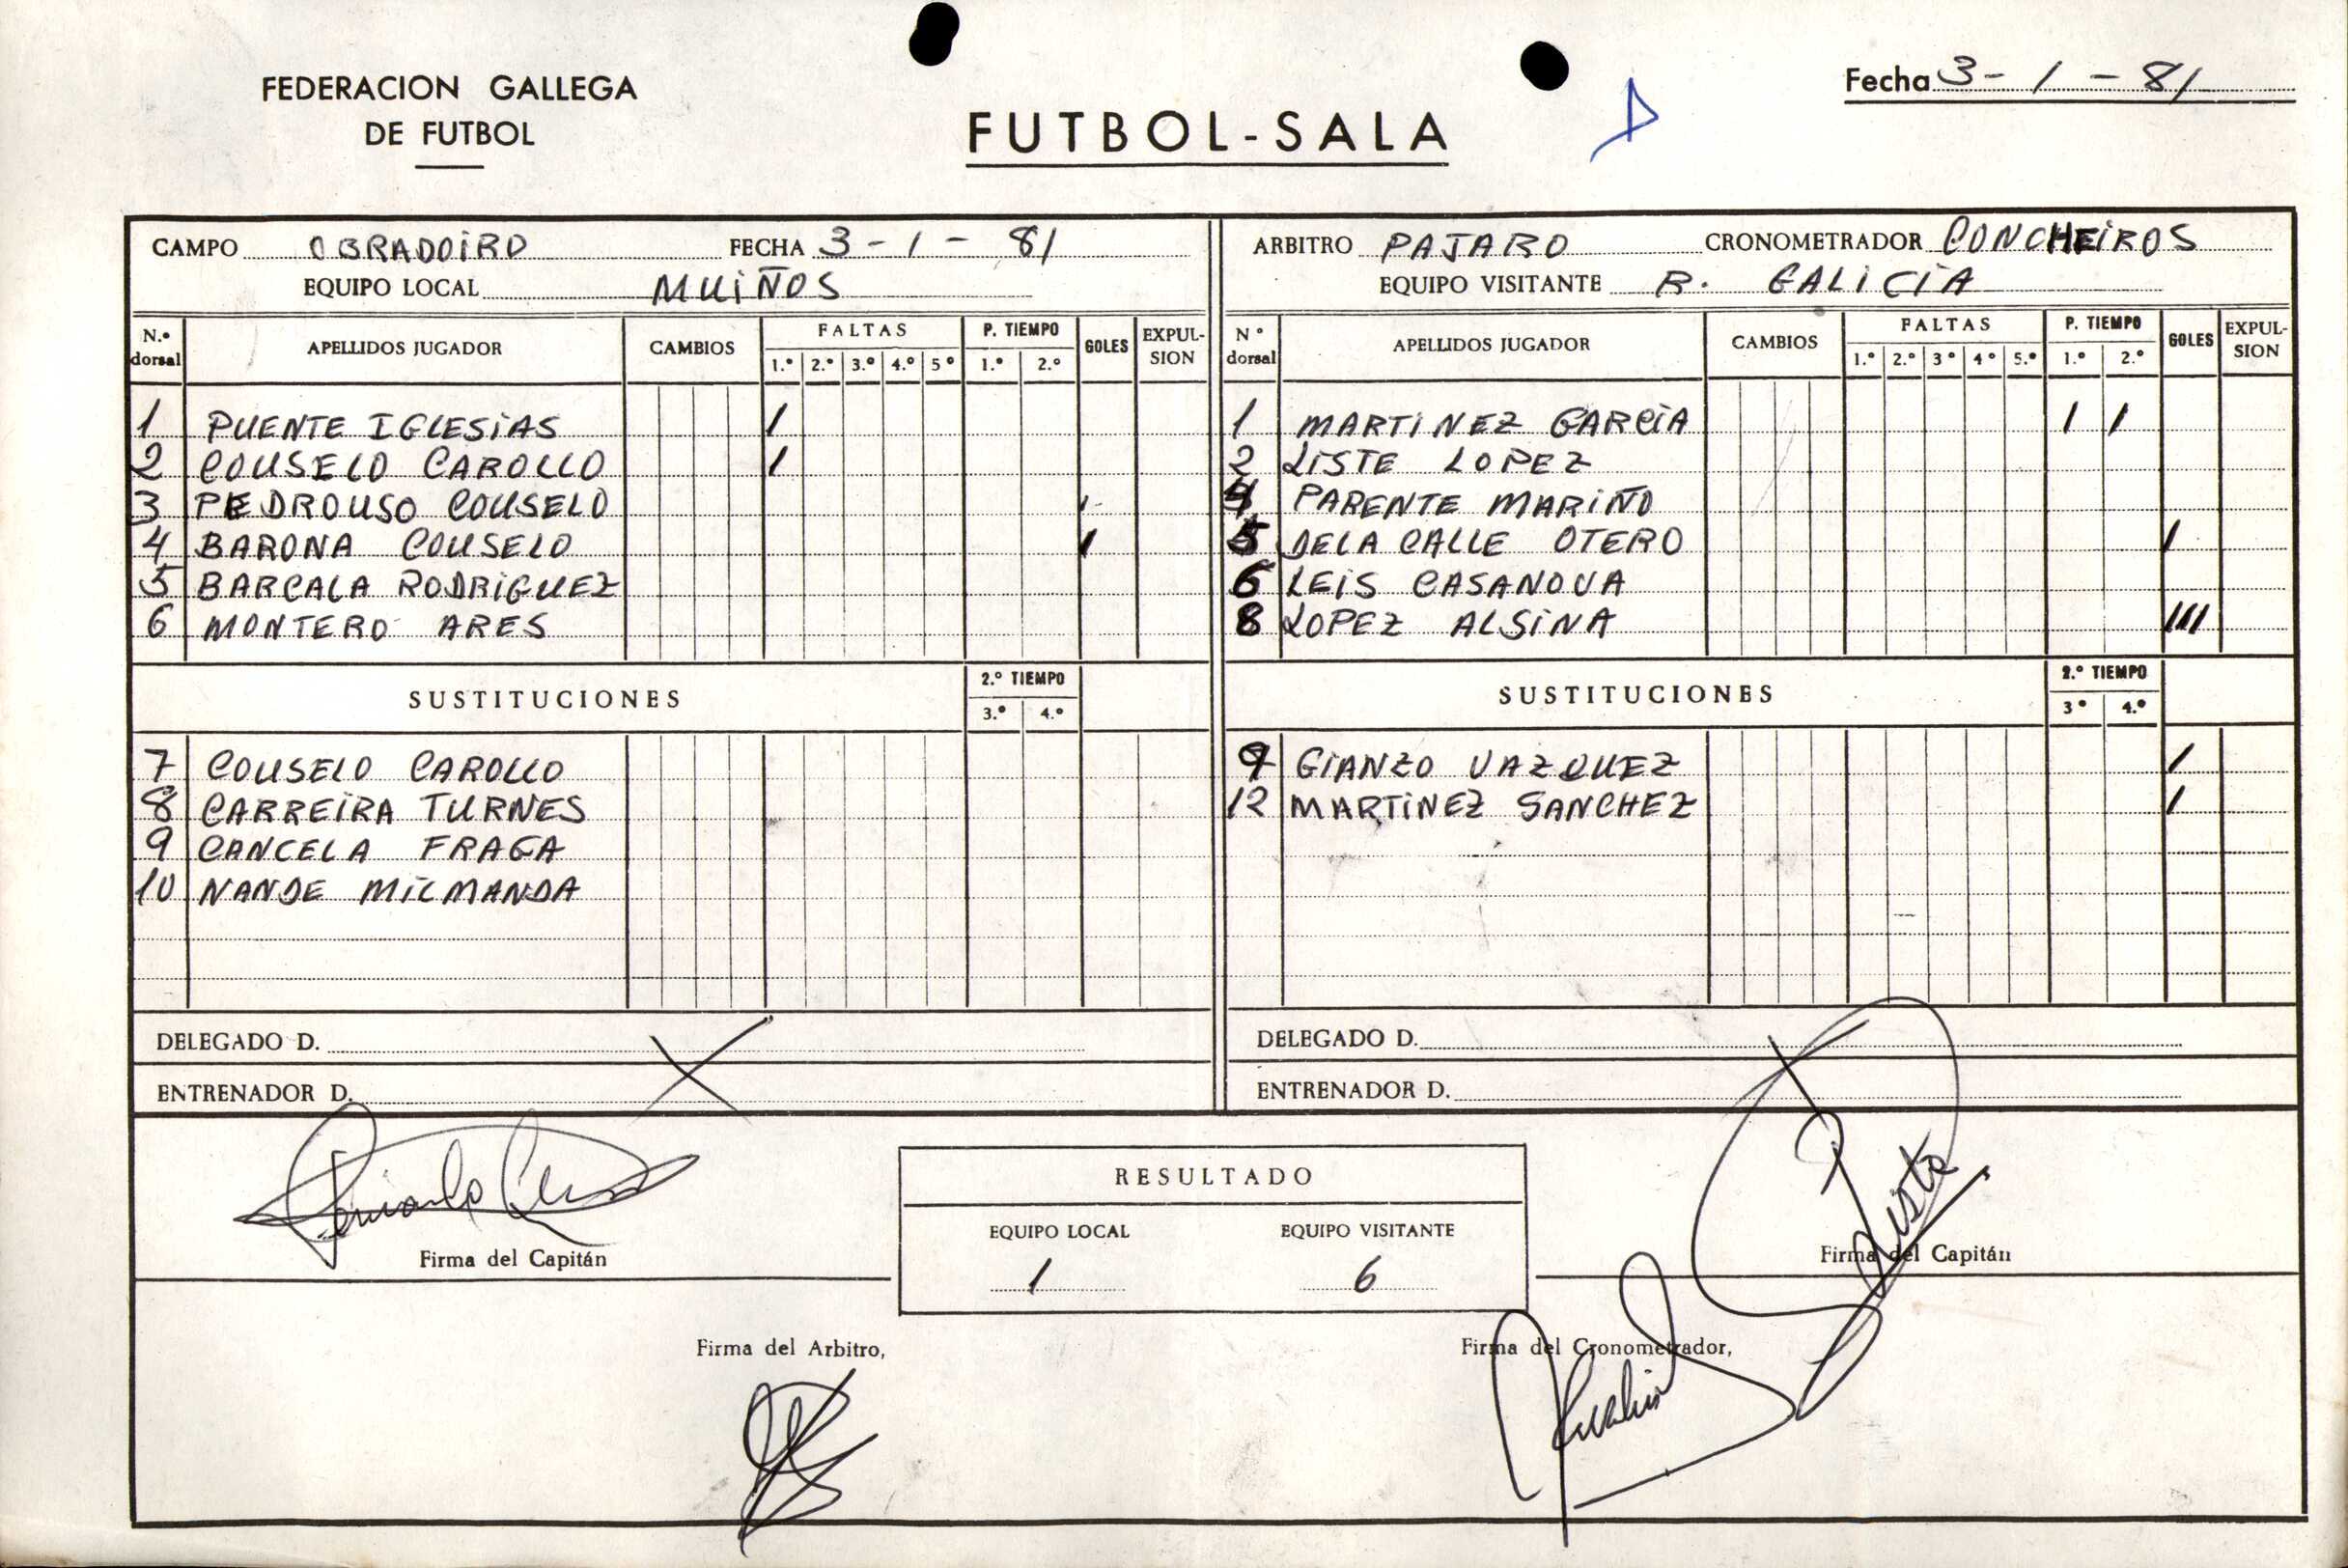 FEDERACION GALLEGA
DE FUTBOL
FUTBOL-SALA
Fecha 3-1-81
CAMPO OBRADOIRO FECHA 3-1-81
EQUIPO LOCAL MUIÑOS
N.º dorsal APELLIDOS JUGADOR CAMBIOS FALTAS 1.º 2.º 3.º 4.º 5º P. TIEMPO 1.º 2.º GOLES EXPULSION
1 PUENTE IGLESIAS /
2 COUSELO CAROLLO /
3 PEDROUSO COUSELO
4 BARONA COUSELO /
5 BARCALA RODRIGUEZ
6 MONTERO ARES
SUSTITUCIONES 2.º TIEMPO 3.º 4.º
7 COUSELO CAROLLO
8 CARREIRA TURNES
9 CANCELA FRAGA
10 NANDE MILMANDA
DELEGADO D.
ENTRENADOR D.
ARBITRO PAJARO CRONOMETRADOR CONCHEIROS
EQUIPO VISITANTE R. GALICIA
Nº dorsal APELLIDOS JUGADOR CAMBIOS FALTAS 1.º 2.º 3º 4º 5.º P. TIEMPO 1.º 2.º GOLES EXPULSION
1 MARTINEZ GARCIA / /
2 LISTE LOPEZ
4 PARENTE MARIÑO
5 DE LA CALLE OTERO /
6 LEIS CASANOVA
8 LOPEZ ALSINA ///
SUSTITUCIONES 2.º TIEMPO 3º 4.º
9 GIANZO VAZQUEZ /
12 MARTINEZ SANCHEZ /
DELEGADO D.
ENTRENADOR D.
RESULTADO
EQUIPO LOCAL EQUIPO VISITANTE
1 6
Firma del Capitán
Firma del Capitán
Firma del Arbitro,
Firma del Cronometrador,